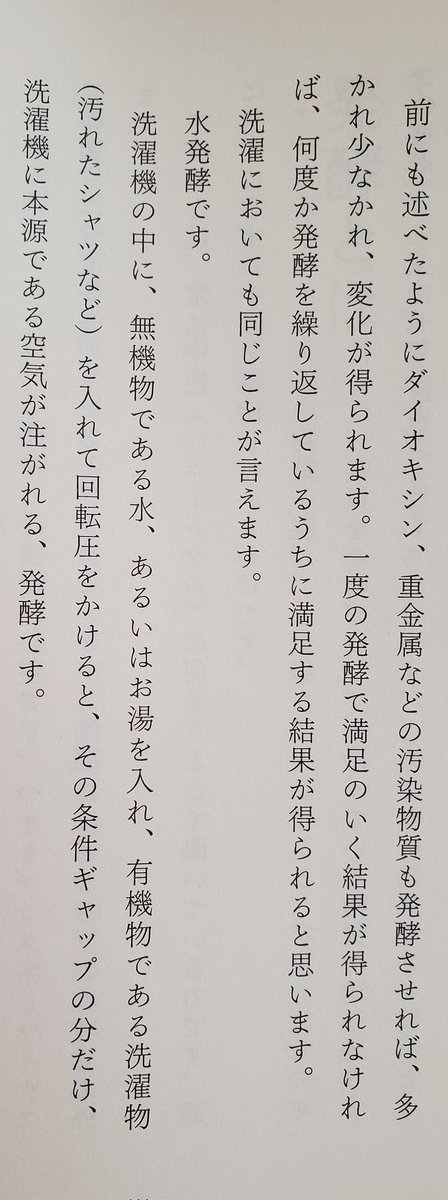 前にも述べたようにダイオキシン、重金属などの汚染物質も発酵させれば、多
かれ少なかれ、変化が得られます。一度の発酵で満足のいく結果が得られなけれ
ば、何度か発酵を繰り返しているうちに満足する結果が得られると思います。
洗濯においても同じことが言えます。
水発酵です。
洗濯機の中に、無機物である水、あるいはお湯を入れ、有機物である洗濯物
(汚れたシャツなど)を入れて回転圧をかけると、その条件ギャップの分だけ、
洗濯機に本源である空気が注がれる、発酵です。